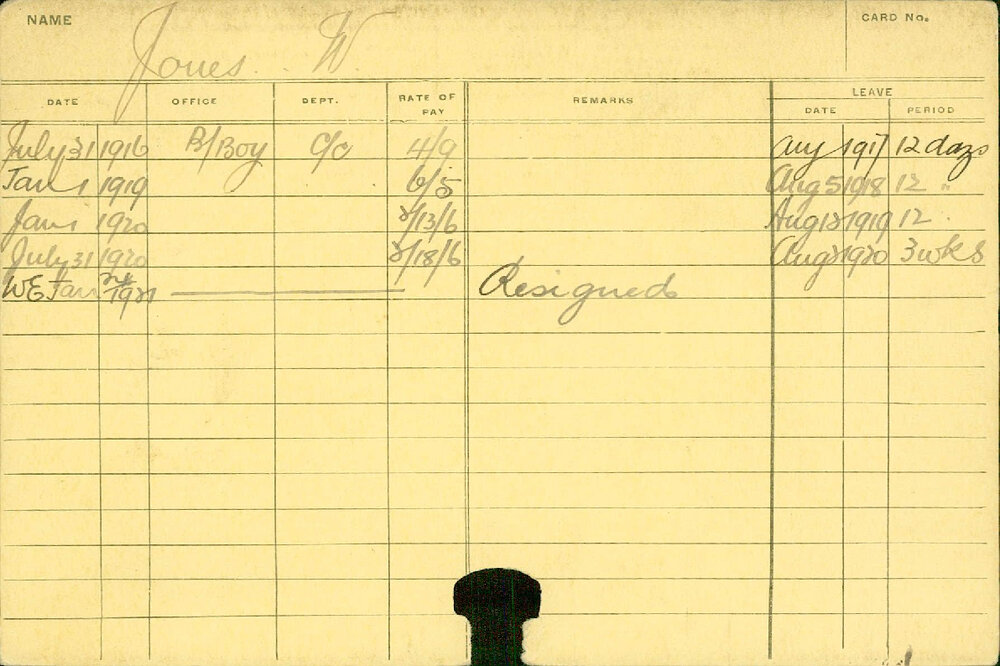 NAME Jones. W. CARD No.
DATE OFFICE DEPT. RATE OF PAY REMARKS LEAVE
DATE PERIOD
July 31 1916 B/Boy C/O 4/9 Aug 1917 12 days
Jan 1 1919 6/5 Aug 5 1918 12 "
Jan 1 1920 2/13/6 Aug 1919 12 "
July 31 1920 2/18/6 Aug 2 1920 3 wks
WE Jan 1921 Resigned